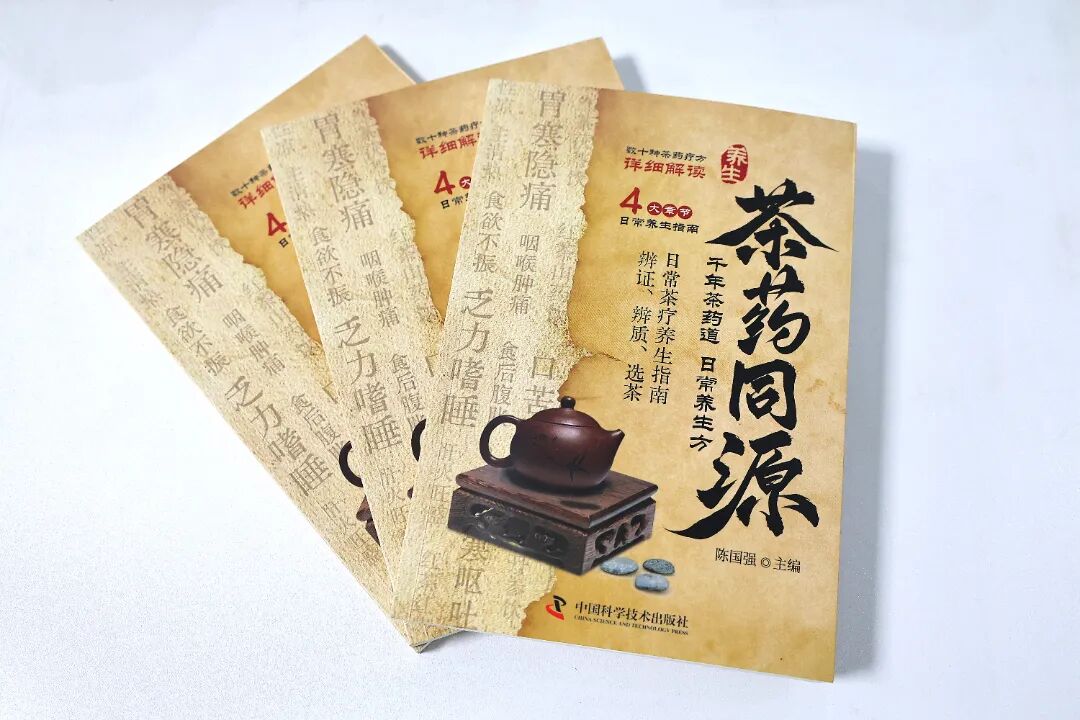 数十种茶药疗方
详细解读
养生
4大章节
日常养生指南
茶药同源
千年茶药道 日常养生方
日常茶疗养生指南
辨证、辨质、选茶
陈国强◎主编
中国科学技术出版社
CHINA SCIENCE AND TECHNOLOGY PRESS
胃寒隐痛
食欲不振
咽喉肿痛
乏力嗜睡
食后腹
口苦
寒呕吐
数十种茶药疗方
详细解读
4大
日常养
胃寒隐痛
食欲不振
咽喉肿痛
乏力嗜睡
食后腹
数十种茶药疗
详细解
4
日
胃寒隐痛
食欲不振
咽喉肿痛
乏力嗜睡